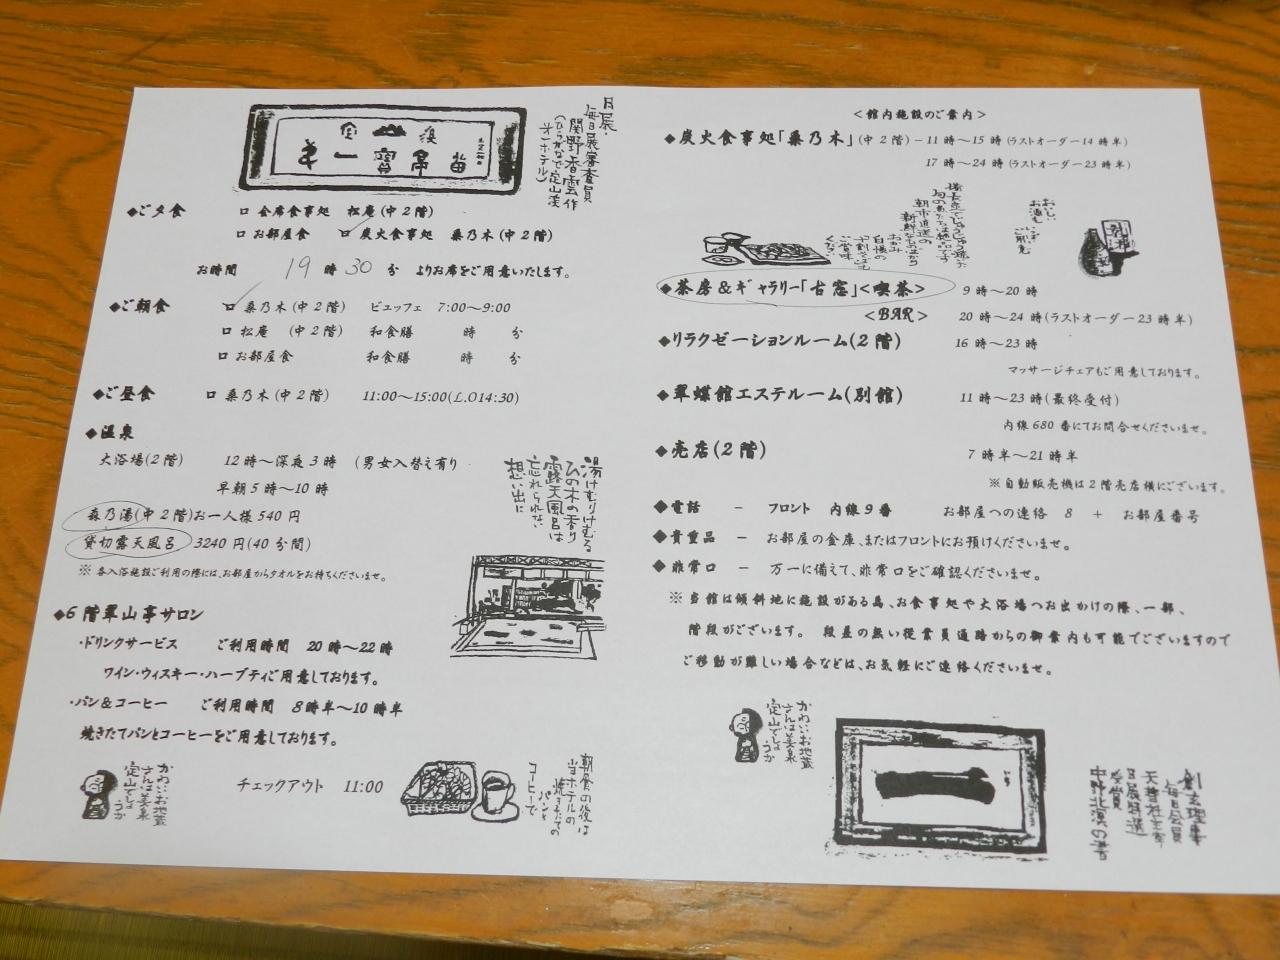 日展・
毎日展審査員
関野香雲作
(ひらがなで定山渓
オーホテル)
◆ご夕食 □ 会席食事処 松庵(中2階)
□ お部屋食 □ 炭火食事処 桑乃木(中2階)
お時間 19 時 30 分 よりお席をご用意いたします。
◆ご朝食 □ 桑乃木(中2階) ビュッフェ 7:00～9:00
□ 松庵 (中2階) 和食膳 時 分
□ お部屋食 和食膳 時 分
◆ご昼食 □ 桑乃木(中2階) 11:00～15:00(L.O14:30)
◆温泉
大浴場(2階) 12時～深夜3時 (男女入替え有り
早朝5時～10時
森乃湯(中2階)お一人様540円
貸切露天風呂 3240円(40分間)
※ 各入浴施設ご利用の際には、お部屋からタオルをお持ちくださいませ。
湯けむりけむる
ひの木の香り
露天風呂は
忘れられない
想い出に
◆6階翠山亭サロン
・ドリンクサービス ご利用時間 20時～22時
ワイン・ウィスキー・ハーブティご用意しております。
・パン＆コーヒー ご利用時間 8時半～10時半
焼きたてパンとコーヒーをご用意しております。
チェックアウト 11:00
かわいいお地蔵
さんは美泉
定山でしょ
うか
朝食の後は
当ホテルの
焼きたての
パンと
コーヒーで
<館内施設のご案内>
◆炭火食事処「桑乃木」(中2階)－11時～15時(ラストオーダー14時半)
17時～24時(ラストオーダー23時半)
朝市直送の
新鮮な
おいしい
お酒も
ご用意も
◆茶房＆ギャラリー「古窓」<喫茶> 9時～20時
<BAR> 20時～24時(ラストオーダー23時半)
◆リラクゼーションルーム(2階) 16時～23時
マッサージチェアもご用意しております。
◆翠蝶館エステルーム(別館) 11時～23時(最終受付)
内線680番にてお問合せくださいませ。
◆売店(2階) 7時半～21時半
※自動販売機は2階売店横にございます。
◆電話 － フロント 内線9番 お部屋への連絡 8 ＋ お部屋番号
◆貴重品 － お部屋の金庫、またはフロントにお預けくださいませ。
◆非常口 － 万一に備えて、非常口をご確認くださいませ。
※ 当館は傾斜地に施設がある為、お食事処や大浴場へお出かけの際、一部、
階段がございます。 段差の無い従業員通路からの御案内も可能でございますので
ご移動が難しい場合などは、お気軽にご連絡くださいませ。
かわいいお地蔵
さんは美泉
定山でしょ
うか
創玄理事
毎日会員
日展特選
受賞